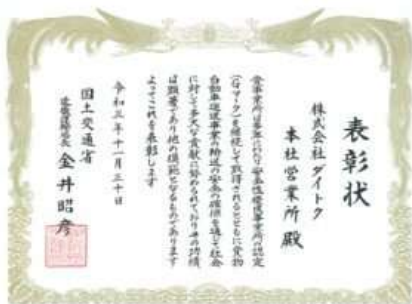 表彰状
株式会社ダイトク
本社営業所 殿
貴事業所は多年にわたり安全性優良事業所の認定
(Gマーク)を継続して取得されるとともに貨物
自動車運送事業の輸送の安全の確保を通じて社会
に対して多大な貢献に努められておりその功績
は顕著であり他の模範となるものであります
よってこれを表彰します
令和三年十一月三十日
国土交通省
近畿運輸局長 金井昭彦